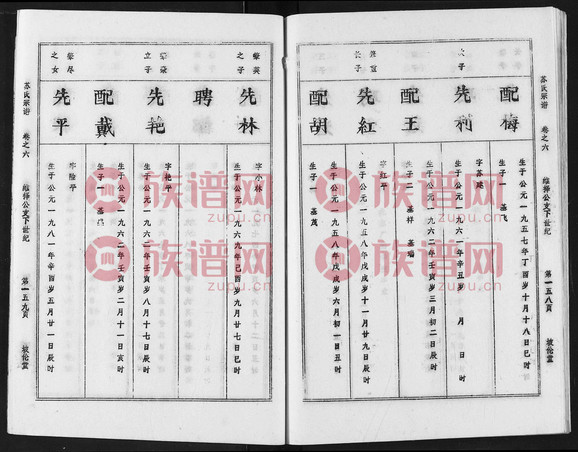 苏氏宗谱
卷之六
维择公支下世纪
第一五八页
敦伦堂
配梅
生于公元一九五七年丁酉岁十月十八日辰时
生子一 基飞
次子
先利
字苏建
生于公元一九六一年辛丑岁 月 日 时
配王
生于公元一九六二年壬寅岁三月初二日辰时
生子二 基祥 基瑞
长子
先红
字红平
生于公元一九五八年戊戌岁十一月廿九日辰时
配胡
生于公元一九五八年戊戌岁六月初一日丑时
生子一 基茂
之子
先林
字小林
生于公元一九六九年己酉岁九月廿七日巳时
聘
立子
先艳
字艳平
生于公元一九六二年壬寅岁八月十七日辰时
配戴
生于公元一九六二年壬寅岁二月十一日亥时
生子一
之女
先平
字险平
生于公元一九八一年辛酉岁五月廿一日辰时
苏氏宗谱
卷之六
维择公支下世纪
第一五九页
敦伦堂
族谱网
zupu.cn
族谱网
zupu.cn
族谱网
zupu.cn
族谱网
zupu.cn